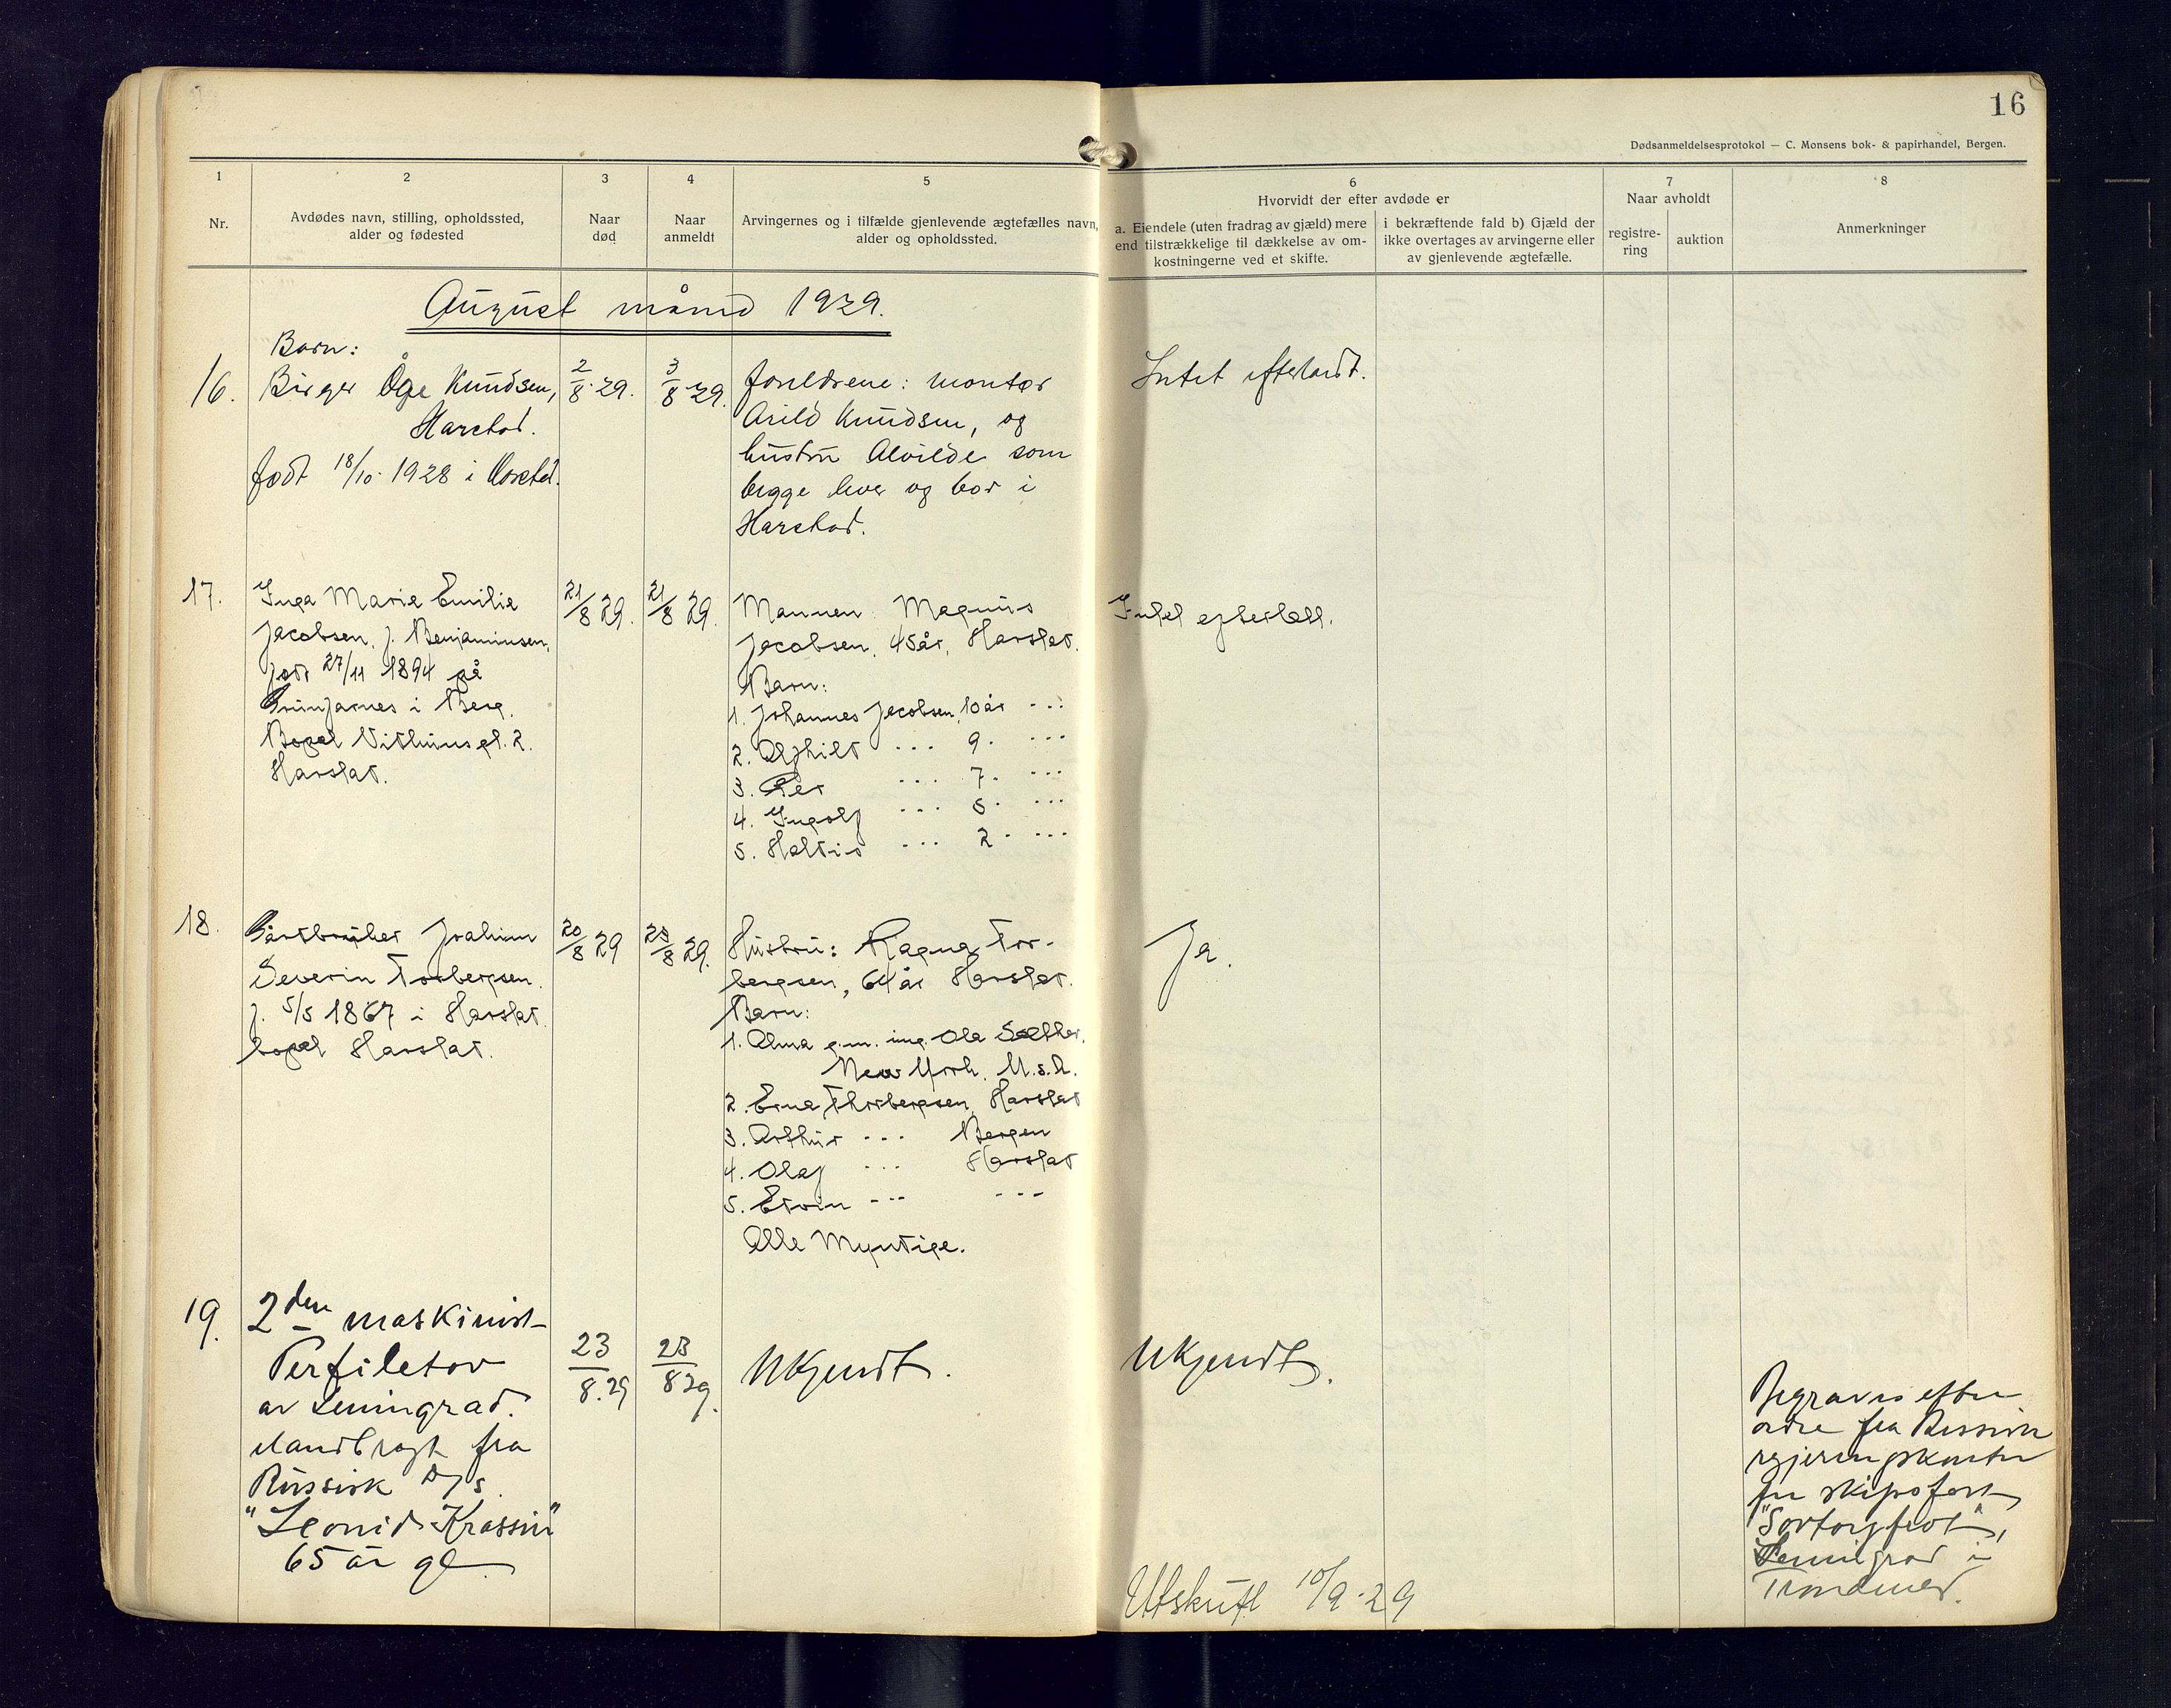 16
Dødsanmeldelsesprotokol — C. Monsens bok- & papirhandel, Bergen.
1
2
3
4
5
6
7
8
Nr.
Avdødes navn, stilling, opholdssted,
alder og fødested
Naar
død
Naar
anmeldt
Arvingernes og i tilfælde gjenlevende ægtefælles navn,
alder og opholdssted.
Hvorvidt der efter avdøde er
a. Eiendele (uten fradrag av gjæld) mere
end tilstrækkelige til dækkelse av om-
kostningerne ved et skifte.
i bekræftende fald b) Gjæld der
ikke overtages av arvingerne eller
av gjenlevende ægtefælle.
Naar avholdt
registre-
ring
auktion
Anmerkninger
August måned 1929.
16.
Barn:
Birger Åge Knudsen,
Harstad.
født 18/10 1928 i Harstad.
2/8 29.
3/8 29.
foreldrene: montør
Arild Knudsen, og
hustru Alvilde som
begge lever og bor i
Harstad.
Intet efterladt.
17.
Inga Marie Emilie
Jacobsen, f. Benjaminsen,
født 27/11 1894 på
i Berg.
Bopel 2.
Harstad.
21/8 29.
21/8 29.
Mannen Magnus
Jacobsen, 45 år, Harstad.
Barn:
1. Johannes Jacobsen, 10 år ---
2. Alfhild --- 9. ---
3. Per --- 7. ---
4. Ingolf --- 5. ---
5. Haldis --- 2. ---
Intet efterlatt.
18.
Gårdbruker Joakim
Severin Torbergsen.
f. 5/5 1867 i Harstad.
bopel Harstad.
20/8 29
23/8 29.
Hustru: Ragna Tor-
bergsen, 64 år Harstad.
Barn:
1. Alma g.m. ing. Ola Sæther,
New York, U.S.A.
2. Erna Thorbergsen, Harstad
3. Arthur --- Bergen
4. Olaf --- Harstad
5. Edvin --- ---
Alle Myndige.
Ja.
19.
2den maskinist
Perfiletov
av Leningrad.
ilandbragt fra
Russisk D/s
"Leonid Krassin"
65 år gl.
23/8.29
23/8 29.
Ukjendt.
Ukjendt.
Begraves efter
ordre fra Russisk
regjeringskontor
for skipsfart
"Sovtorgflot",
Leningrad i
Trondenes.
Utskrift 10/9-29